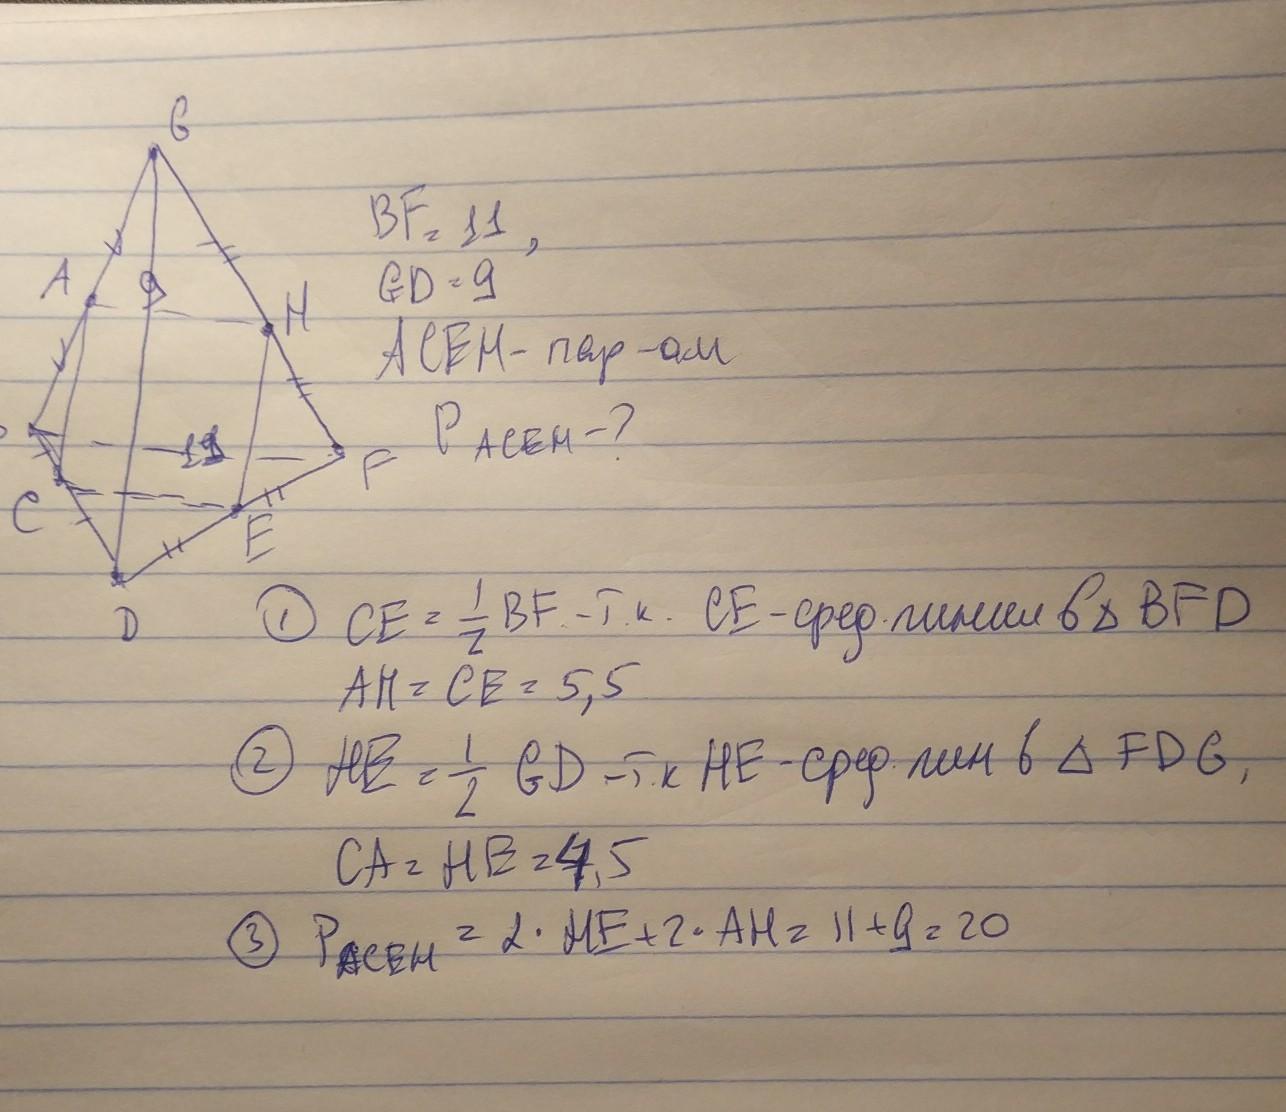 G
BF = 11,
A 9 H GD = 9
ACEH - пар-ам
11 F P ACEH - ?
C E
D
① CE = 1/2 BF. - т.к. CE - сред. линия в △ BFD
AH = CE = 5,5
② HE = 1/2 GD - т.к HE - сред. лин в △ FDG,
CA = HE = 4,5
③ PACEH = 2 · HE + 2 · AH = 11 + 9 = 20